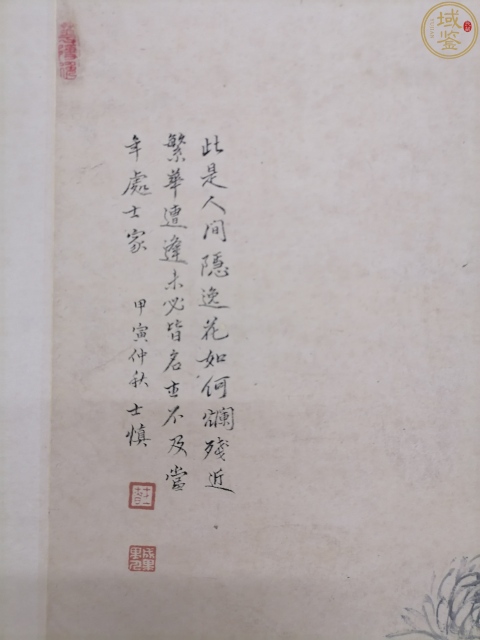 此是人间隐逸花如何斓残近
繁華遭逢未必皆名士不及當
年處士家 甲寅仲秋士慎
域鉴